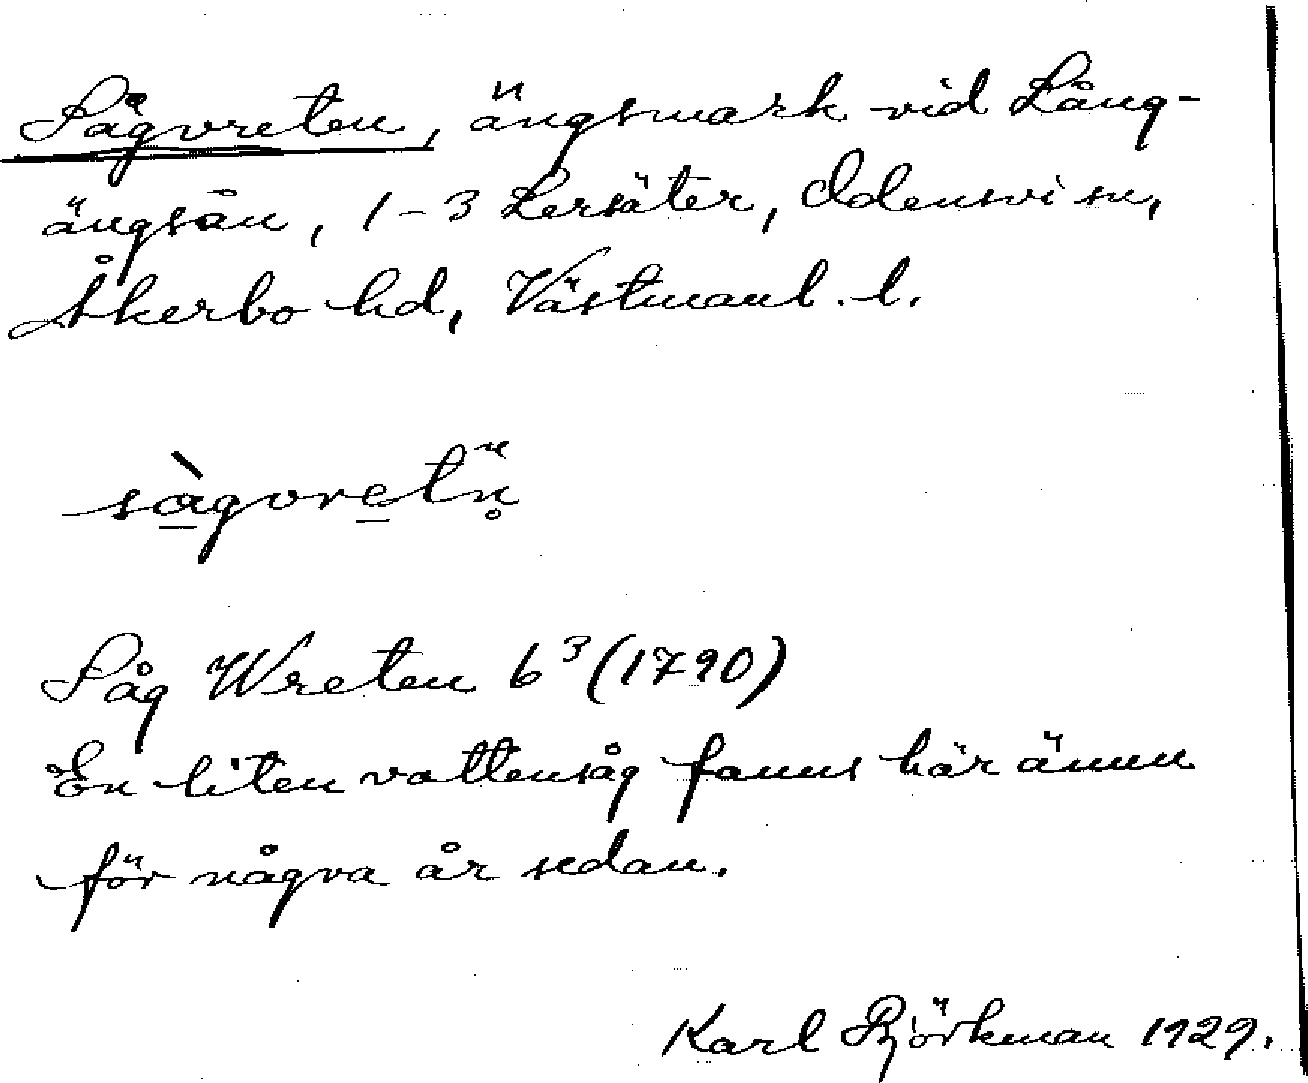 Sågvreten, ängsmark vid Lång-
ängsån, 1-3 Lersäter, Odensvi sn,
Åkerbo hd, Västmanl. l.
sàgvretn̥
Såg Wreten 6³ (1790)
En liten vattensåg fanns här ännu
för några år sedan.
Karl Björkman 1929.